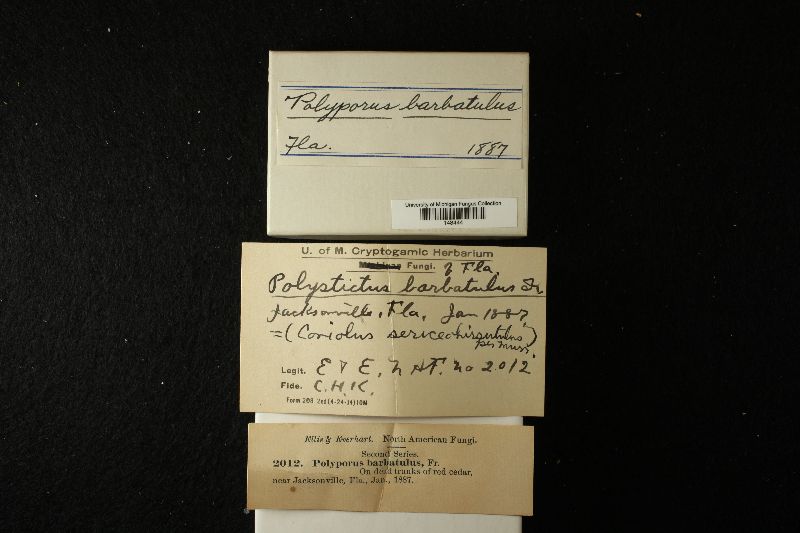 Polyporus barbatulus
Fla. 1887
University of Michigan Fungus Collection
U. of M. Cryptogamic Herbarium
Michigan Fungi. of Fla.
Polystictus barbatulus Fr
Jacksonville, Fla, Jan 1887,
=(Coriolus sericeohirsutulus)
per Murr.
Legit. E & E, N A F. no 2012
Fide. C. H. K.
Form 208 2ed (4-24-14) 10M
Ellis & Everhart. North American Fungi.
Second Series.
2012. Polyporus barbatulus, Fr.
On dead trunks of red cedar,
near Jacksonville, Fla., Jan., 1887.